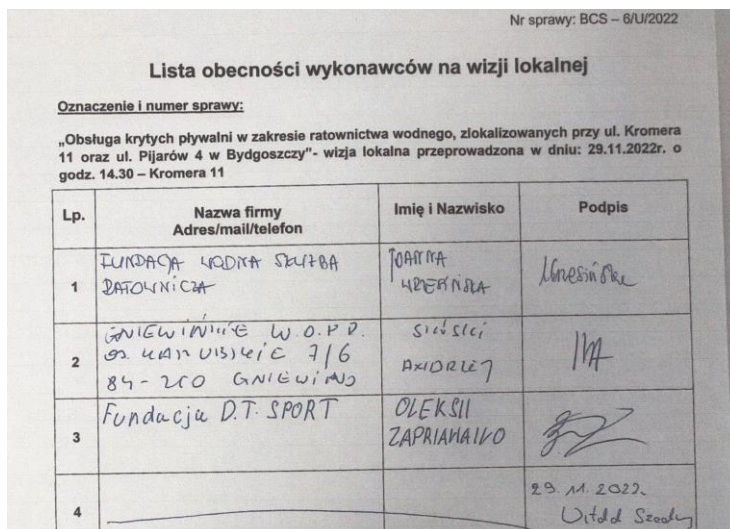 Nr sprawy: BCS – 6/U/2022
Lista obecności wykonawców na wizji lokalnej
Oznaczenie i numer sprawy:
„Obsługa krytych pływalni w zakresie ratownictwa wodnego, zlokalizowanych przy ul. Kromera
11 oraz ul. Pijarów 4 w Bydgoszczy”- wizja lokalna przeprowadzona w dniu: 29.11.2022r. o
godz. 14.30 – Kromera 11
Lp.
Nazwa firmy
Adres/mail/telefon
Imię i Nazwisko
Podpis
1
FUNDACJA WODNA SŁUŻBA
RATOWNICZA
JOANNA
WRZESIŃSKA
Wrzesińska
2
W.O.P.R.
7/6
84-250 GNIEWINO
3
Fundacja D.T. SPORT
OLEKSII
4
29.11.2022.
Witold